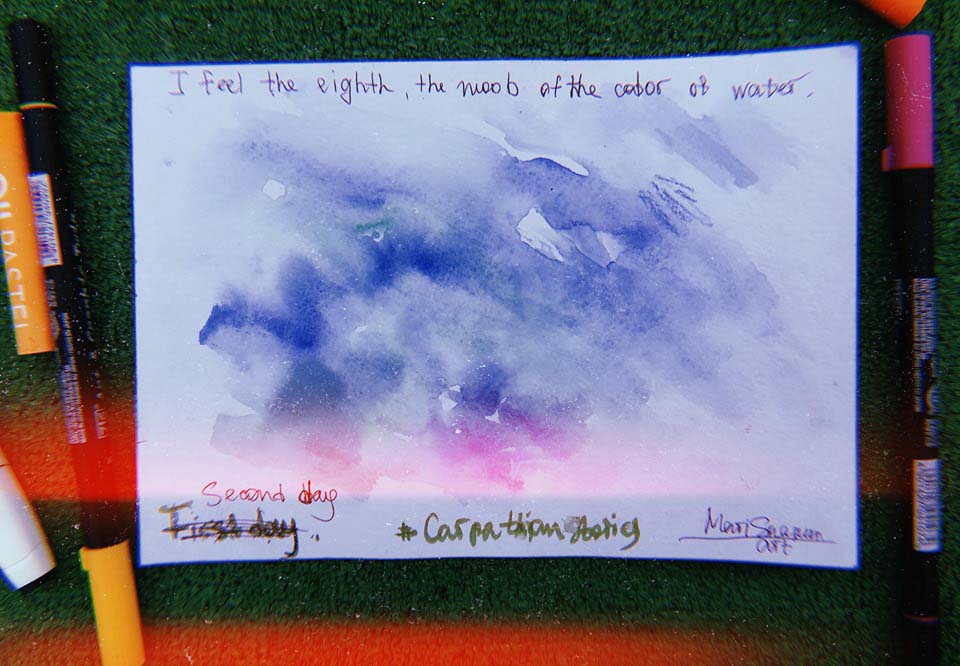 I feel the eighth, the moob of the cabor of waber.
Second day
First day.
# Carpathian stories
Mari
art
OIL PASTEL